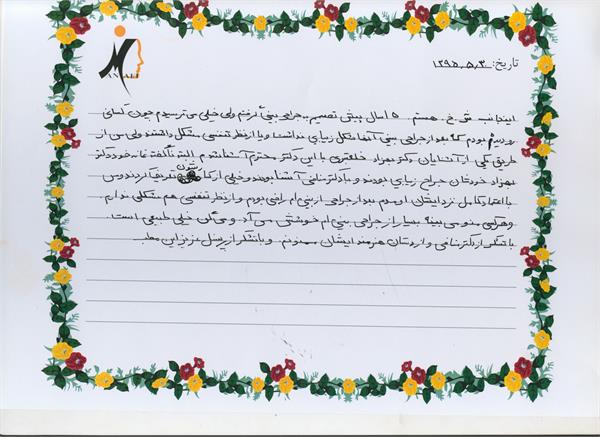 MANAFI
تاریخ: ۱۳۹۵.۵.۳
اینجانب ش.خ. هستم. ۵ سال پیش تصمیم به جراحی بینی گرفتم ولی خیلی می ترسیدم چون کسانی
رو دیده بودم که بعد از جراحی بینی آنها شکل زیبای نداشت و یا از نظر تنفسی مشکل داشتند ولی من از
طریق یکی از آشنایان دکتر بهزاد با این دکتر محترم آشنا شدم البته ناگفته نماند خود دکتر
بهزاد خودشان جراح زیبایی بودند و با دکتر منافی آشنا بودند و خیلی از کارشون تعریف کردند و من
با اعتماد کامل نزد ایشان اومدم بعد از جراحی از بینی ام راضی بودم و از نظر تنفسی هم مشکلی ندارم
و هرکسی منو می بینه بسیار از جراحی بینی ام خوشش می آد و می گن خیلی طبیعی است.
با تشکر از دکتر منافی و از دستان هنرمند ایشان ممنونم. و با تشکر از پرسنل عزیز این مطب